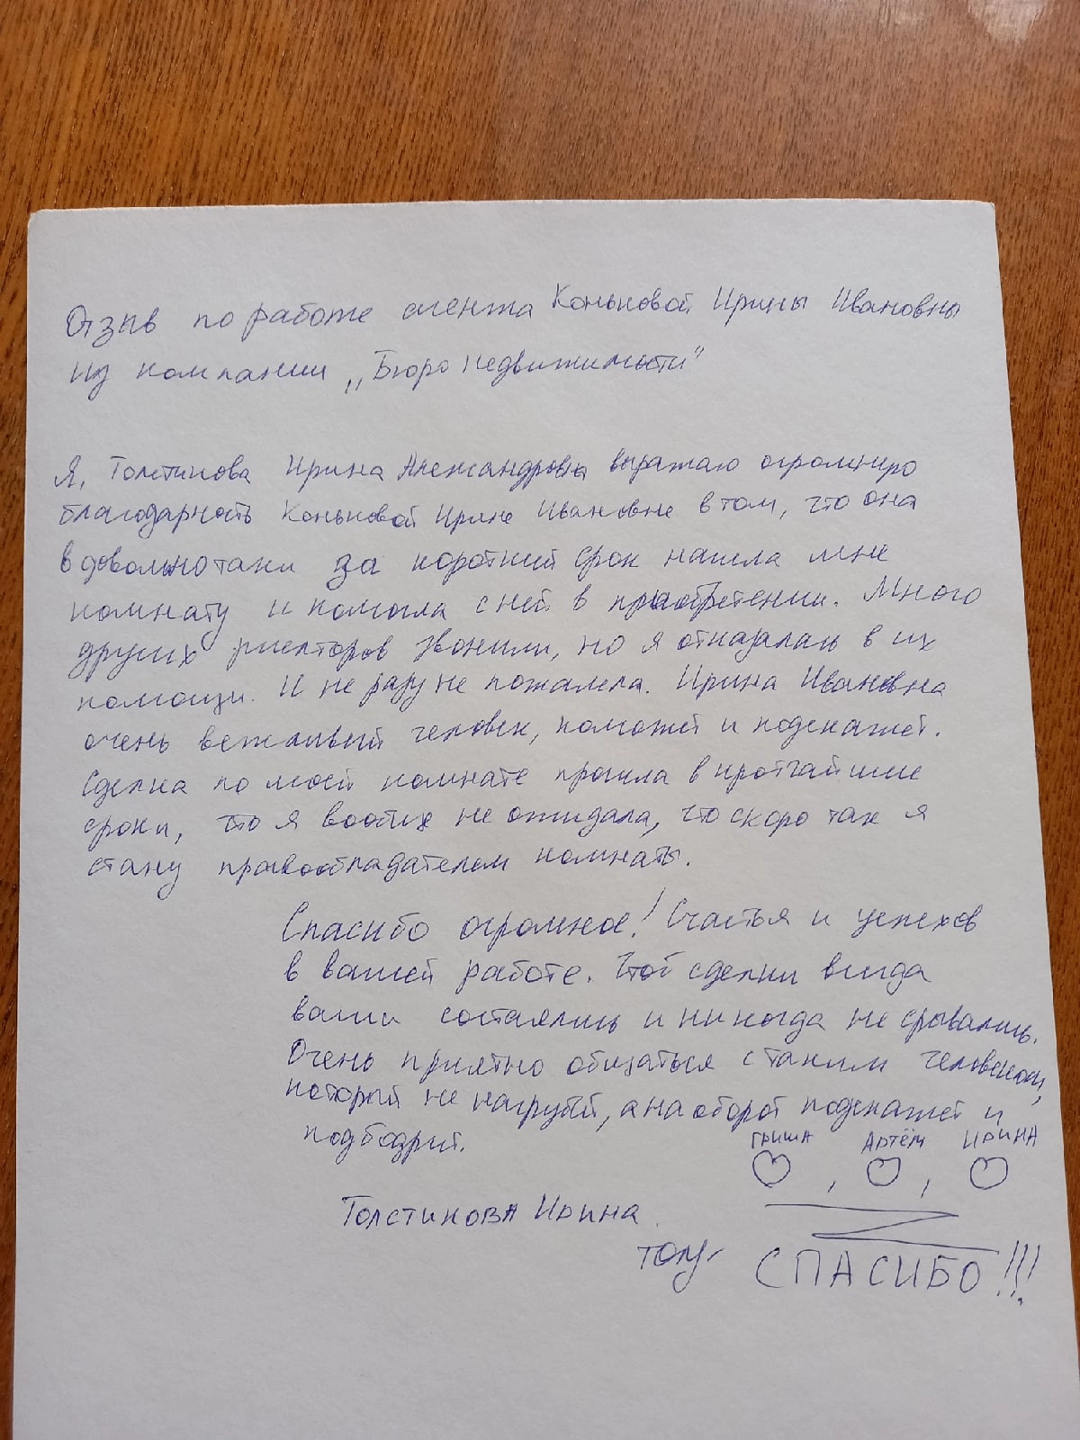 Отзыв по работе агента Коньковой Ирины Ивановны
из компании „Бюро недвижимости"
Я, Толстикова Ирина Александровна выражаю огромную
благодарность Коньковой Ирине Ивановне в том, что она
в довольно таки за короткий срок нашла мне
комнату и помогла с ней в приобретении. Много
других риелторов звонили, но я отказалась в их
помощи. И не разу не пожалела. Ирина Ивановна
очень вежливый человек, поможет и подскажет.
Сделка по моей комнате прошла в кротчайшие
сроки, что я вообще не ожидала, что скоро так я
стану правообладателем комнаты.
Спасибо огромное! Счастья и успехов
в вашей работе. Чтоб сделки всегда
ваши состоялись и никогда не срывались.
Очень приятно общаться с таким человеком,
который не нагрубит, а на оборот подскажет и
подбодрит.
ГРИША АРТЁМ ИРИНА
Толстикова Ирина
СПАСИБО!!!